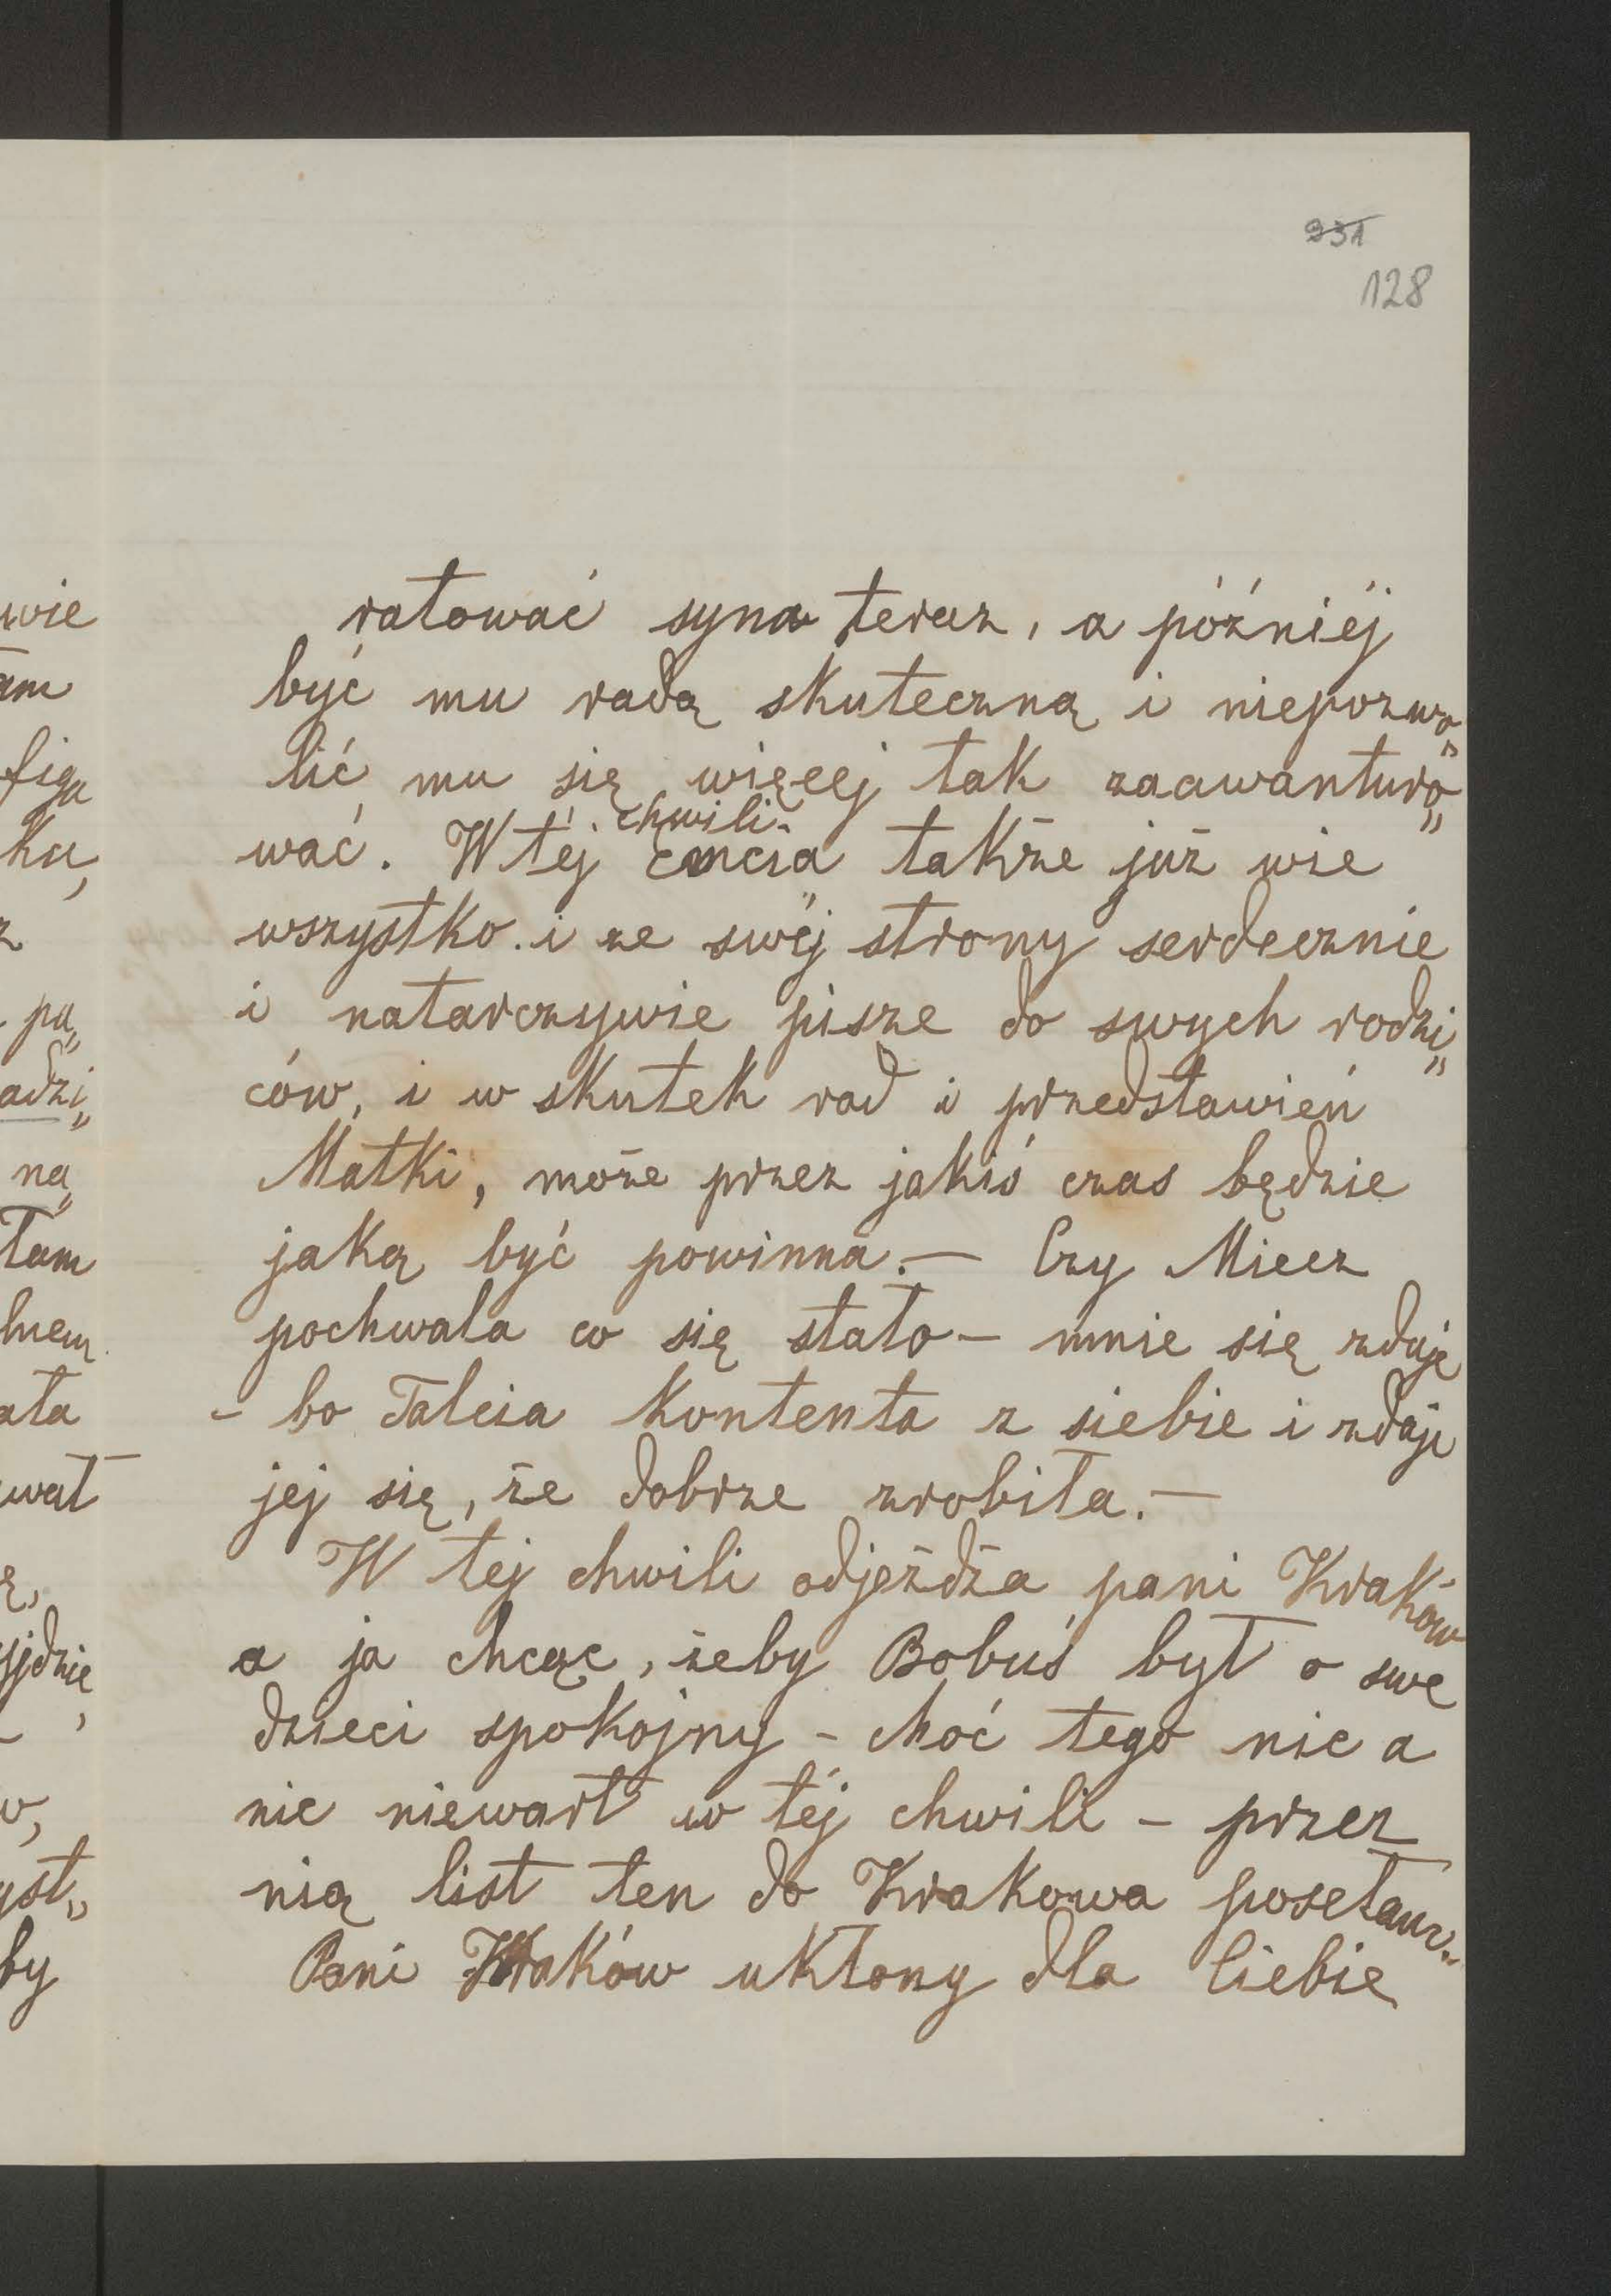 931
128
ratować syna teraz, a późniéj
być mu radą skuteczną i niepozwo„
lić mu się więcej tak zaawanturo„
chwili
wać. W téj Cencia także już wie
wszystko i ze swéj strony serdecznie
i natarczywie pisze do swych rodzi„
ców, i w skutek rad i przedstawień
Matki, może przez jakiś czas będzie
jaką być powinna. — Czy Miecz
pochwala co się stało — mnie się zdaje
– bo Talcia kontenta z siebie i zdaje
jej się, że dobrze zrobiła. —
W tej chwili odjeżdża pani Kraków
a ja chcąc, żeby Bobuś był o swe
dzieci spokojny – choć tego nic a
nic niewart w téj chwili – przez
nią list ten do Krakowa posełam.
Pani Kraków ukłony dla Ciebie
wie
am
figu
ku,
z
pa„
adzi„
na„
tam
ała
wał
ę,
jdzie
w,
yst„
by